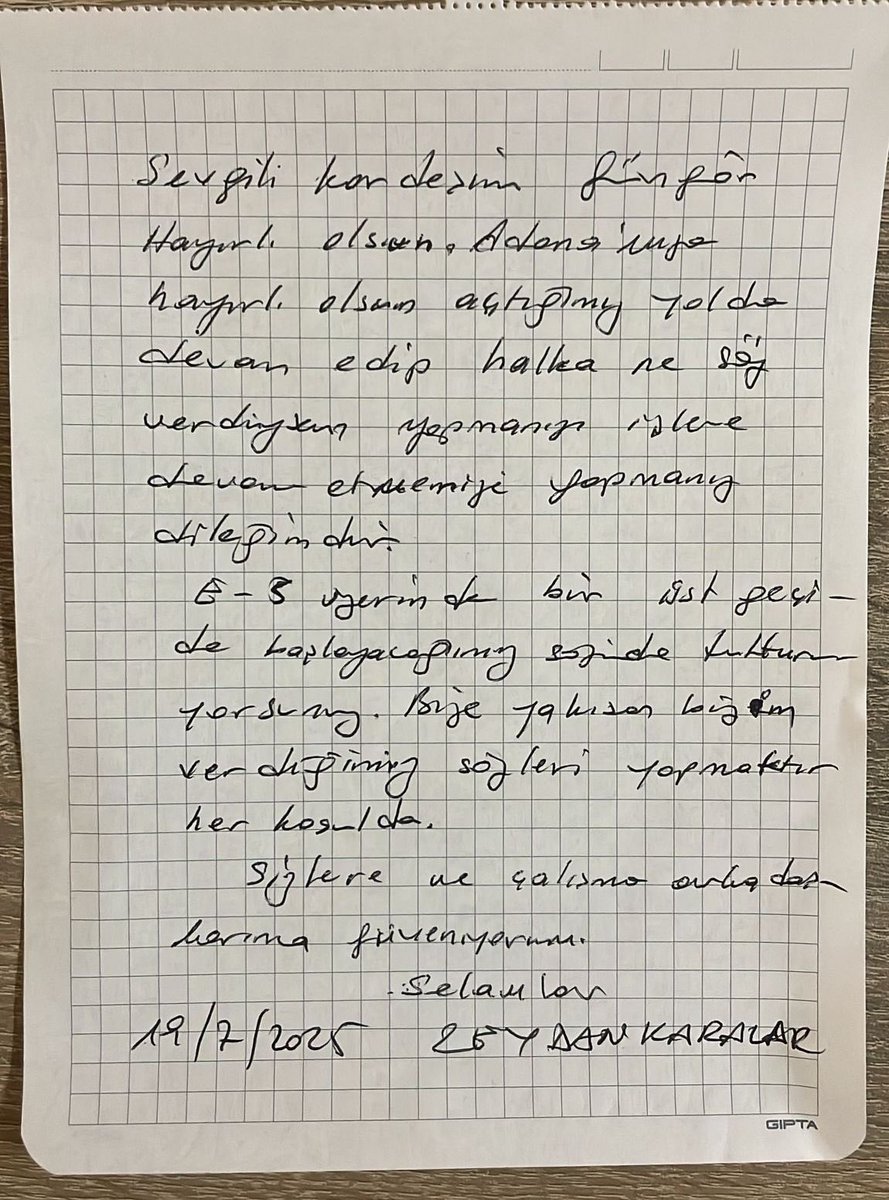 Sevgili kardeşim Güngör
Hayırlı olsun. Adana'mıza
hayırlı olsun açtığımız yolda
devam edip halka ne söz
verdiysem yapmanızı işlere
devam etmemizi yapmanız
dileğimdir.
E-5 üzerinde bir üst geçi-
de başlayacağımız sözünde tuttun
yorsunuz. Bize yakışan bizim
verdiğimiz sözleri yapmaktır
her koşulda.
Sizlere ve çalışma arkadaş-
larıma güveniyorum.
Selamlar
19/7/2025 ZEYDAN KARALAR
GIPTA